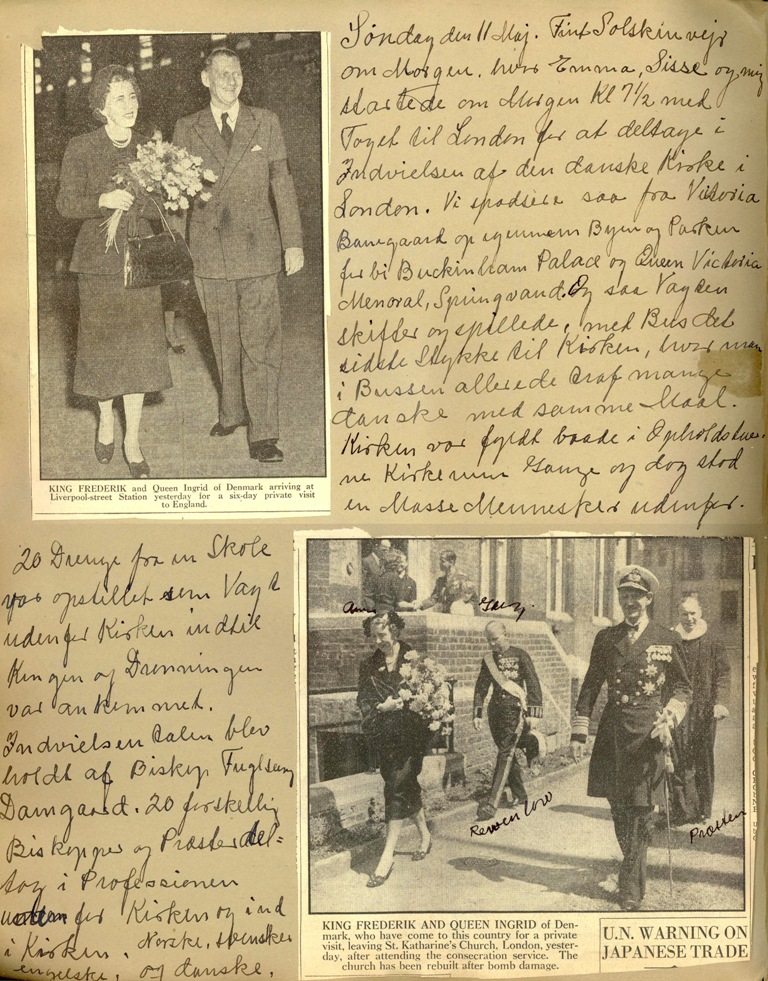 Søndag den 11 Maj. Fint Solskin vejr
om Morgen, hvor Emma, Sisse og mig
startede om Morgen Kl 7½ med
Toget til London for at deltage i
Indvielsen af den danske Kirke i
London. Vi spadsere saa fra Victoria
Banegaard op igennem Byen og Parken
forbi Buckinham Palace og Queen Victoria
Menoral, Springvand. Og saa Vagten
skifter og spillede, med Bus det
sidste Stykke til Kirken, hvor man
i Bussen allerede traf mange
danske med samme Maal.
Kirken var fyldt baade i
ne Kirken og dog stod
en Masse Mennesker udenfor.
KING FREDERIK and Queen Ingrid of Denmark arriving at
Liverpool-street Station yesterday for a six-day private visit
to England.
20 Drenge fra en Skole
var opstillet som Vagt
udenfor Kirken indtil
Kongen og Dronningen
var ankommet.
Indvielsen talen blev
holdt af Biskop Fuglsang
Damgaard. 20 forskellig
Biskopper og Præster del=
tog i Professionen
udenfor Kirken og ind
i Kirken. Norske, svenske,
engelske, og danske.
Præsten
KING FREDERIK AND QUEEN INGRID of Den-
mark, who have come to this country for a private
visit, leaving St. Katharine's Church, London, yester-
day, after attending the consecration service. The
church has been rebuilt after bomb damage.
U.N. WARNING ON
JAPANESE TRADE